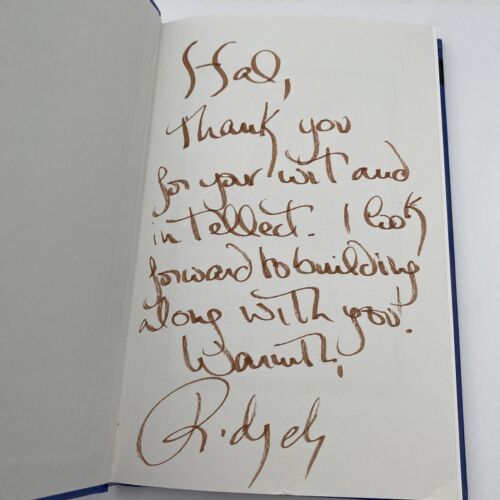 Hal,
Thank you
for your wit and
intellect. I look
forward to building
along with you!
Warmth,
Ridgely